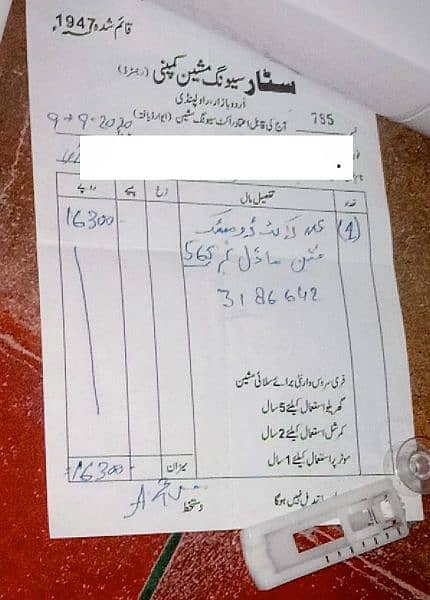 قائم شدہ 1947ء
سٹار سیونگ مشین کمپنی (رجسٹرڈ)
اُردو بازار، راولپنڈی
785 آج کی قابل اعتماد راکٹ سیونگ مشین (ایوارڈ یافتہ)
9-9-2020
تعداد تفصیل مال نرخ پیسے روپے
(1) 16300
مشین ماڈل نمبر 565
3186642
فری سروس وارنٹی برائے سلائی مشین
گھریلو استعمال کیلئے 5 سال
کمرشل استعمال کیلئے 2 سال
موٹر پر استعمال کیلئے 1 سال
میزان 16300
دستخط
تبدیل نہیں ہوگا